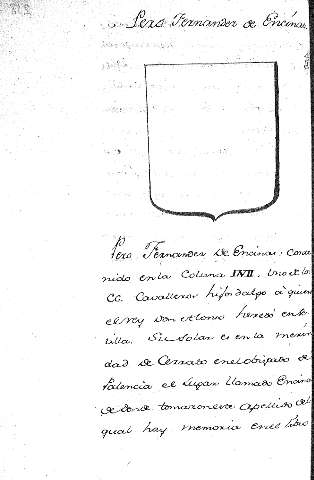 Pero Fernandez de Encinas.
Pero Fernandez De Encinas. Conte
nido en la Coluna IVII. Uno de los
CC. Cavalleros hijosdalgo à quien
el rey Don Alonso heredó en Se
villa. Su solar es en la merin
dad de Cerrato en el obispado de
Palencia el lugar llamado Encinas
de donde tomaron este apellido del
qual hay memoria en el libro